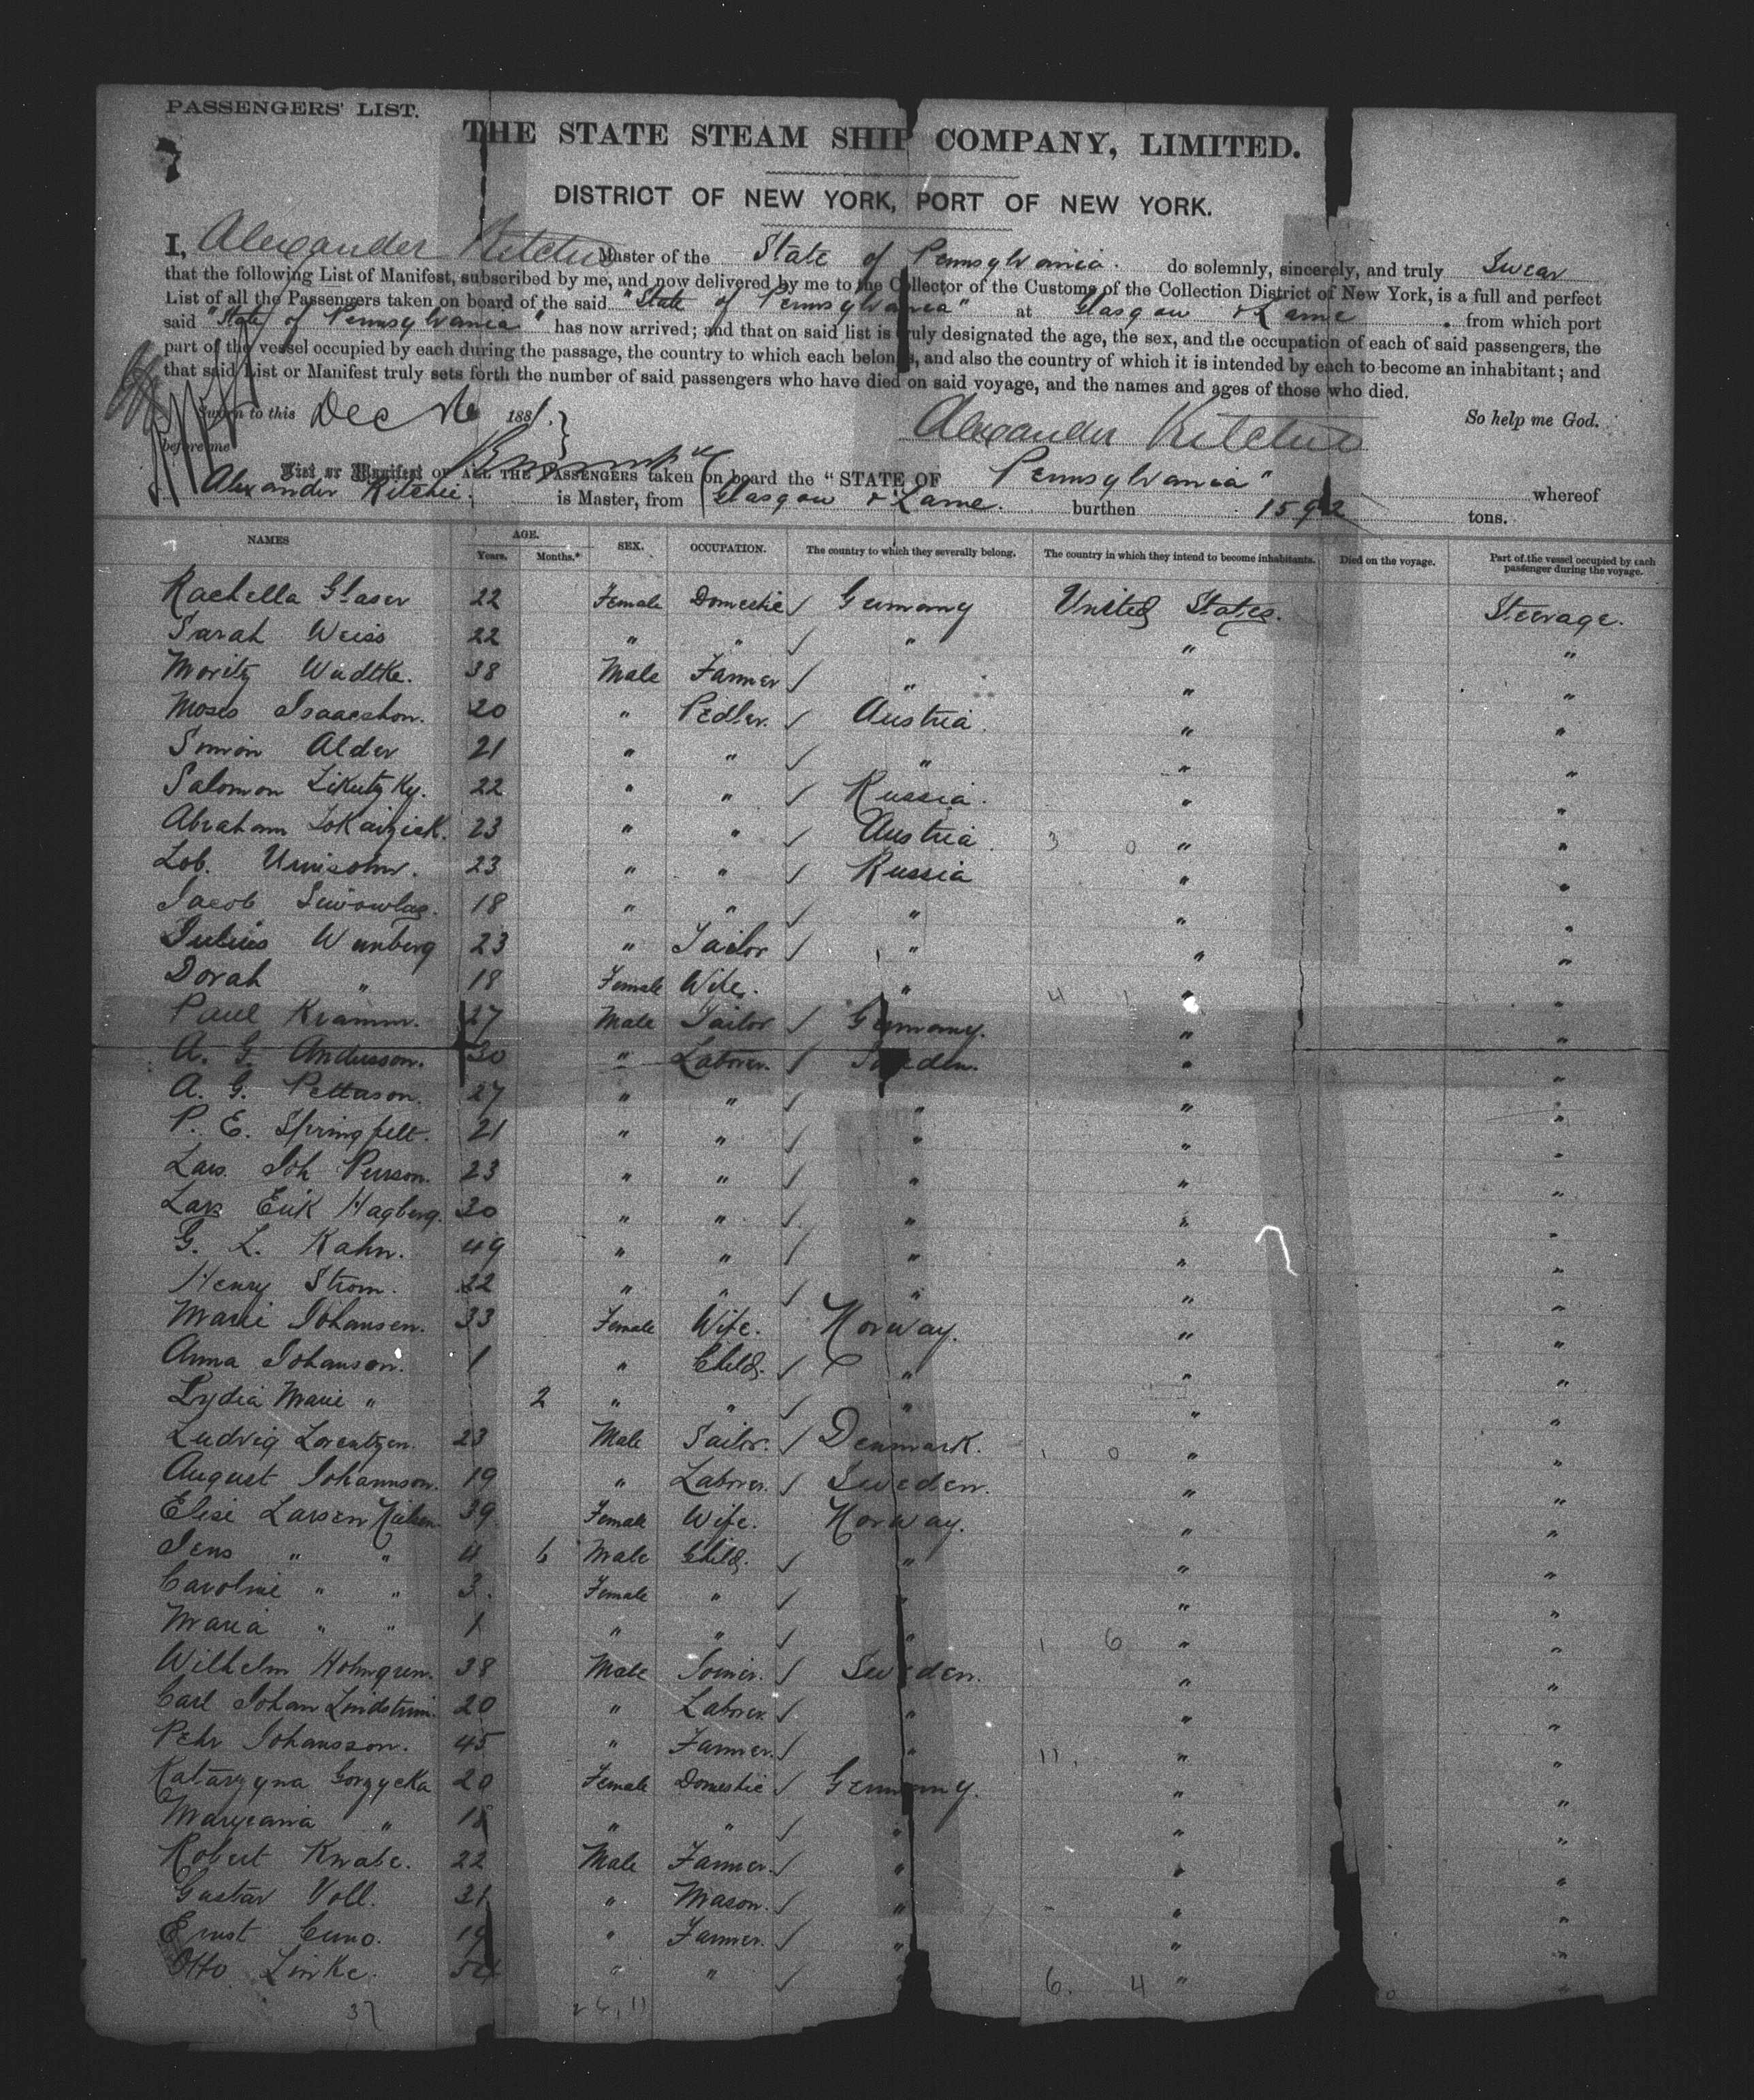 PASSENGERS' LIST.
THE STATE STEAM SHIP COMPANY, LIMITED.
DISTRICT OF NEW YORK, PORT OF NEW YORK.
I, Alexander Ritchie Master of the State of Pennsylvania. do solemnly, sincerely, and truly Swear
that the following List of Manifest, subscribed by me, and now delivered by me to the Collector of the Customs of the Collection District of New York, is a full and perfect
List of all the Passengers taken on board of the said "State of Pennsylvania" at Glasgow & Larne from which port
said "State of Pennsylvania" has now arrived; and that on said list is truly designated the age, the sex, and the occupation of each of said passengers, the
part of the vessel occupied by each during the passage, the country to which each belongs, and also the country of which it is intended by each to become an inhabitant; and
that said List or Manifest truly sets forth the number of said passengers who have died on said voyage, and the names and ages of those who died.
Sworn to this Dec 188 So help me God.
before me Alexander Ritchie
List or Manifest OF ALL THE PASSENGERS taken on board the "STATE OF Pennsylvania" whereof
Alexander Ritchie is Master, from Glasgow & Larne. burthen 1592 tons.
NAMES AGE. Years. Months.* SEX. OCCUPATION. The country to which they severally belong. The country in which they intend to become inhabitants. Died on the voyage. Part of the vessel occupied by each passenger during the voyage.
Rachella Glaser 22 Female Domestic / Germany United States. Steerage.
Sarah Weiss 22 " " / " " "
Moritz Wudtke. 38 Male Farmer / " " "
Moses Isaacshon. 20 " Pedler. / Austria. " "
Simon Alder 21 " " / " " "
Salomon Likutzky. 22 " " / Russia. " "
Abraham 23 " " / Austria. 3 0 " "
Lob. 23 " " / Russia " "
Jacob 18 " " / " " "
Julius Wunberg 23 " Tailor / " " "
Dorah " 18 Female Wife. " 4 1 " "
Paul Kramm. 27 Male Tailor / Germany. " "
A. G. Andersson. 30 " Laborer. / Sweden. " "
A. G. Pettason. 27 " " / " " "
P. E. Springfelt. 21 " " / " " "
Lars. Joh Person. 23 " " / " " "
Lars Erik Hagberg. 20 " " / " " "
G. L. Kahn. 49 " " / " " "
Henry Strom. 22 " " / " " "
Marie Johansen. 33 Female Wife. Norway. " "
Anna Johanson. 1 " Child. / " " "
Lydia Marie " 2 " " / " " "
Ludvig Lorentzen. 23 Male Sailor. / Denmark. 1 0 " "
August Johannson. 19 " Laborer. / Sweden. " "
Elise Larsen Nielsen 39. Female Wife. Norway. " "
Jens " " 4 6 Male Child. / " " "
Caroline " " 3. Female " / " " "
Maria " " 1 " " / " 1 6 " "
Wilhelm Holmgren. 38 Male Joiner. / Sweden. " "
Carl Johan Lindstrom. 20 " Laborer. / " " "
Pehr Johansson. 45 " Farmer. / " 11. " "
Katarzyna Gorzycka 20 Female Domestic / Germany. " "
Maryanna " 18 " " / " " "
Robert Knabe. 22 Male Farmer. / " " "
Gustav Voll. 31 " Mason. / " " "
Ernst Cuno. 19 " Farmer. / " " "
Otto Linke. " " / " 6. 4 " "
37